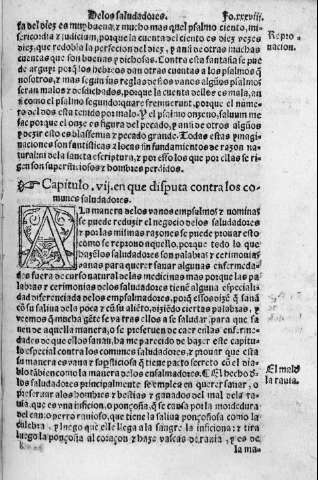 De los saludadores. Fo.xxxviij.
ta del diez es muy buena, y mucho mas quel psalmo ciento, mi
sericordia z iudicium, porque la cuenta del ciento es diez vezes
diez, que redobla la perfecion del diez, y anſi de otras muchas
cuentas que son buenas y dichosas. Contra esta fantasia se pue
de arguyr porq̃ los hebreos dan otras cuentas a los psalmos q̃
nosotros, y mas se sigue desta vanidad, que algũos psalmos
seran malos y desdichados, porque la cuenta dellos es mala, an
si como el psalmo segundo: quare fremuerunt, porque el nume-
ro del dos esta tenido por malo. Y el psalmo onzeno, saluum me
fac porque el onze es figura del pecado, y anſi de otros algũos
y dezir esto es blasfemia y pecado grande. Todas estas ymagi
naciones son fantasticas z locas sin fundamentos de razon na
tural ni de la sancta escriptura, y por esso los que por ellas se ri
gen son supersticiosos z hombres perdidos.
Repro-
nacion.
☞ Capitulo. vij. en que disputa contra los co-
munes saludadores.
A La manera de los vanos empsalmos z nominas
se puede reduzir el negocio de los saludadores
z por las mismas razones se puede prouar esto
como se reprono aquello, porque todo lo que
hazẽ los saludadores son palabras y cerimonias
vanas para querer sanar algunas enfermeda-
des fuera de curso natural de las medicinas mas porque las pa
labras y cerimonias de los saludadores tiene alguna especiali-
dad diferenciada de los empsalmadores, porq̃ essos dizẽ q̃ sanã
cõ su saliua de la boca z cõ su aliẽto, diziẽdo ciertas palabras, y
veemos q̃ mucha gẽte se va tras ellos a se saludar para que sa
nen de aquella manera, o se preseruen de caer en las enferme-
dades de que ellos sanan, ha me parecido de hazer este capitu
lo especial contra los comunes saludadores, z prouar que esta
su manera es vana z supsticiosa z tiene pacto secreto cõ el dia-
blo tãbien como la manera de los ensalmadores. ¶ El hecho ð
los saludadores principalmente se emplea en querer sanar, o
preseruar a los hombres y bestias z ganados del mal de la ra-
uia, que es vna inficion, o ponçoña, q̃ se causa por la mordedura
del can, o perro rauioso, que tiene la saliua ponçoñosa como la
culebra, y luego que ella llega a la sangre la inficiona: z tira
luego la ponçoña al coraçon y haze vascas de rauia, y es de
El mal ð
la rauia.
la ma-